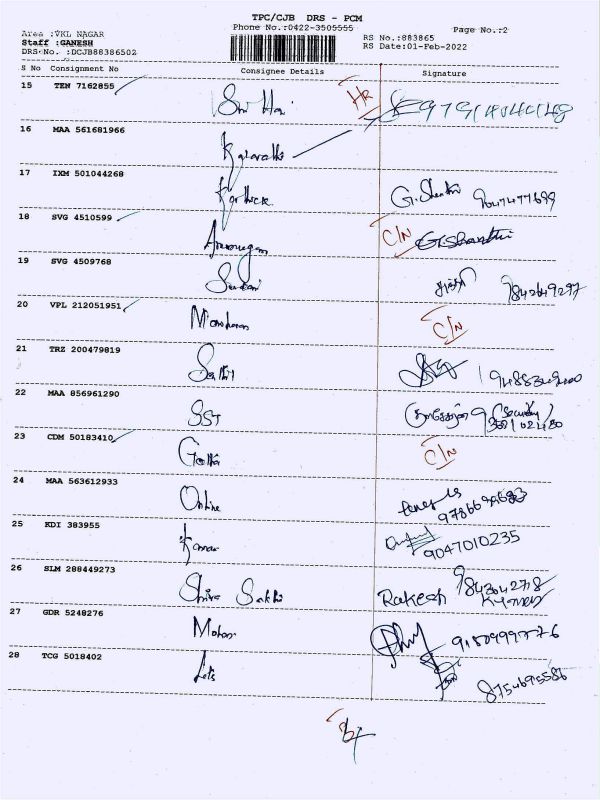 TPC/CJB DRS - PCM
Area :VKL NAGAR Phone No.:0422-3505555 Page No.:2
Staff :GANESH RS No.:883865
DRS-No. :DCJB88386502 RS Date:01-Feb-2022
S No Consignment No Consignee Details Signature
15 TEN 7162855 HR
16 MAA 561681966
17 IXM 501044268 Karthick G. Shanthi 9047477699
18 SVG 4510599 Arumugam C/N G. Shanthi
19 SVG 4509768 9842649297
20 VPL 212051951 Manoharan C/N
21 TRZ 200479819
22 MAA 856961290 SST (Security)
23 CDM 50183410 Geetha C/N
24 MAA 563612933 Online
25 KDI 383955 Kumar 9047010235
26 SLM 288449273 Shiva Sakthi Rakesh 9843042718
27 GDR 5248276 Mohan
28 TCG 5018402 8754695586